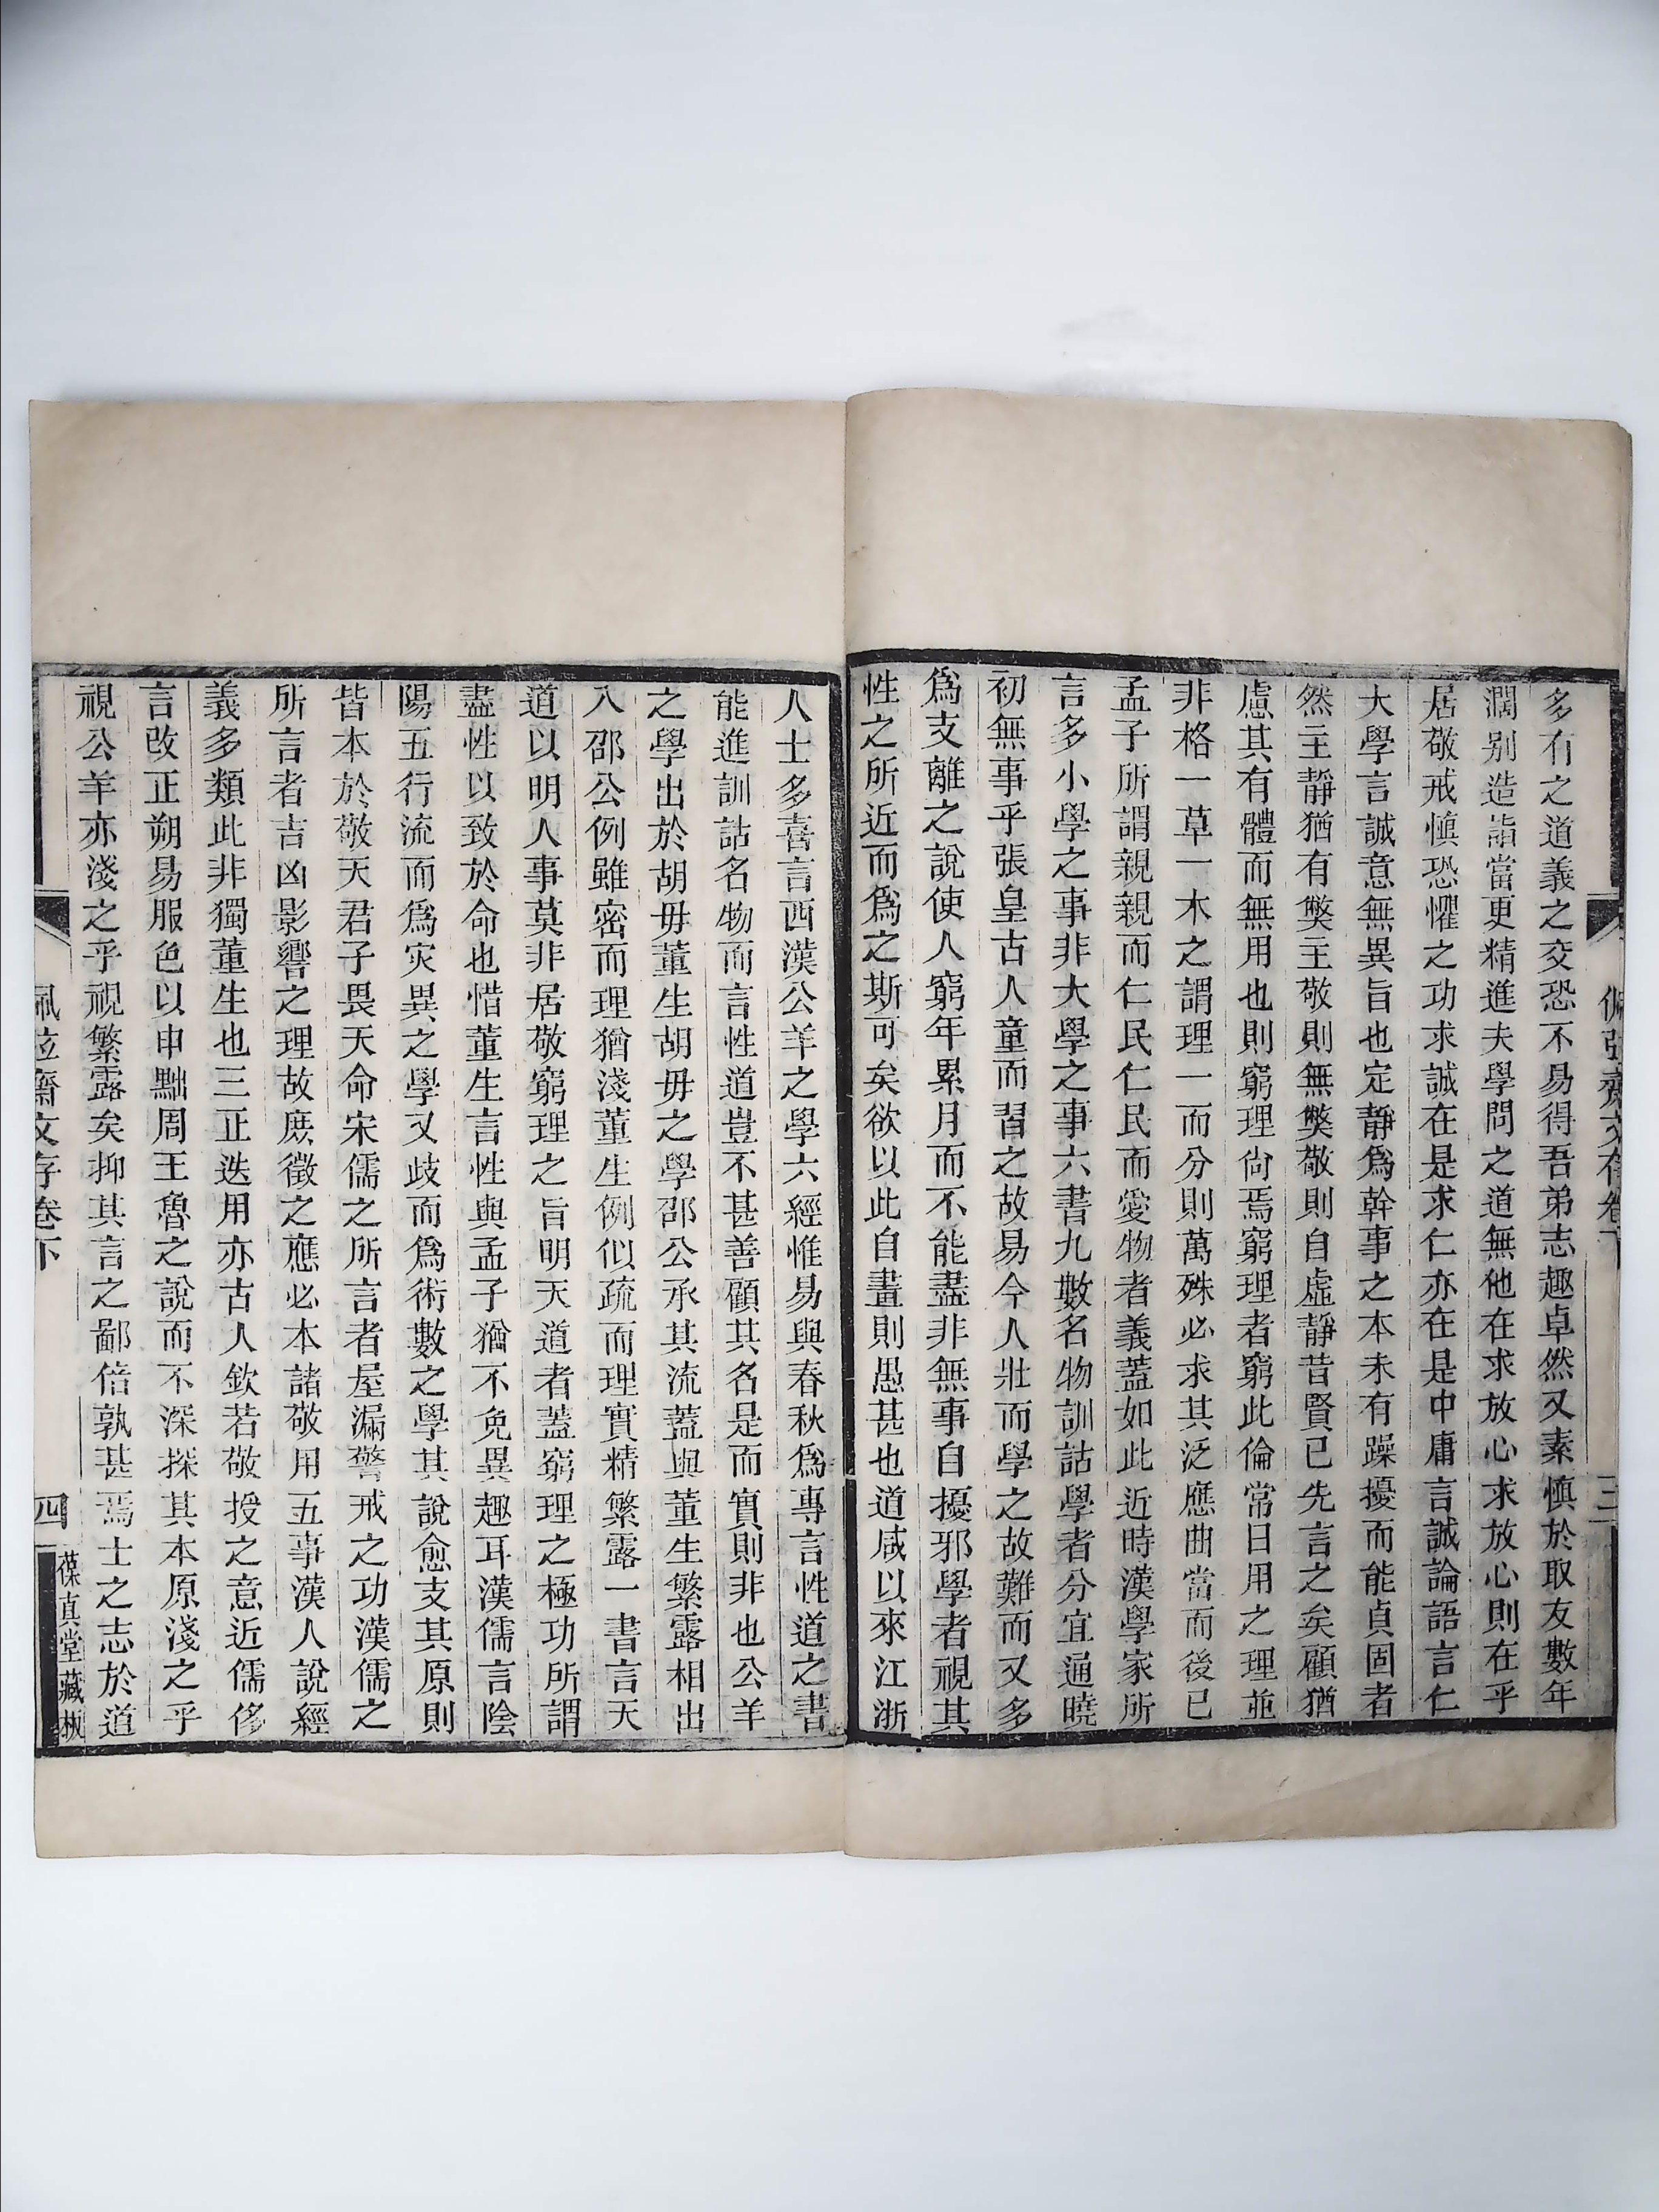 佩弦齋文存卷下
三
多有之道義之交恐不易得吾弟志趣卓然又素慎於取友數年
濶别造詣當更精進夫學問之道無他在求放心求放心則在乎
居敬戒慎恐懼之功求誠在是求仁亦在是中庸言誠論語言仁
大學言誠意無異旨也定靜爲幹事之本未有躁擾而能貞固者
然主靜猶有獘主敬則無獘敬則自虛靜昔賢已先言之矣顧猶
慮其有體而無用也則窮理尙焉窮理者窮此倫常日用之理並
非格一草一木之謂理一而分則萬殊必求其泛應曲當而後已
孟子所謂親親而仁民仁民而愛物者義蓋如此近時漢學家所
言多小學之事非大學之事六書九數名物訓詁學者分宜通曉
初無事乎張皇古人童而習之故易今人壯而學之故難而又多
爲支離之說使人窮年累月而不能盡非無事自擾邪學者視其
性之所近而爲之斯可矣欲以此自畫則愚甚也道咸以來江浙
人士多喜言西漢公羊之學六經惟易與春秋爲專言性道之書
能進訓詁名物而言性道豈不甚善顧其名是而實則非也公羊
之學出於胡毋董生胡毋之學邵公承其流蓋與董生繁露相出
入邵公例雖密而理猶淺董生例似疏而理實精繁露一書言天
道以明人事莫非居敬窮理之旨明天道者蓋窮理之極功所謂
盡性以致於命也惜董生言性與孟子猶不免異趣耳漢儒言陰
陽五行流而爲灾異之學又歧而爲術數之學其說愈支其原則
皆本於敬天君子畏天命宋儒之所言者屋漏警戒之功漢儒之
所言者吉凶影響之理故庶徵之應必本諸敬用五事漢人說經
義多類此非獨董生也三正迭用亦古人欽若敬授之意近儒侈
言改正朔易服色以申黜周王魯之說而不深探其本原淺之乎
視公羊亦淺之乎視繁露矣抑其言之鄙倍孰甚焉士之志於道
佩弦齋文存卷下
四
葆真堂藏板